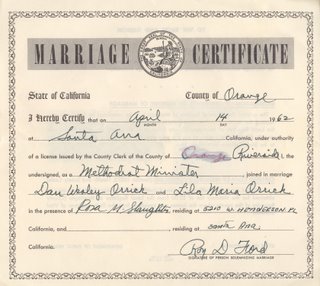 MARRIAGE CERTIFICATE
State of California County of Orange
I Hereby Certify that on April 14 1962
MONTH DAY
at Santa Ana California, under authority
of a license issued by the County Clerk of the County of Orange Riverside I, the
undersigned, as a Methodist Minister joined in marriage
Dan Wesley Orrick and Lila Maria Orrick
in the presence of Rosa M. Slaughter residing at 5210 W. HENDERSON PL
California, and residing at Santa Ana,
California. Roy D. Ford
SIGNATURE OF PERSON SOLEMNIZING MARRIAGE